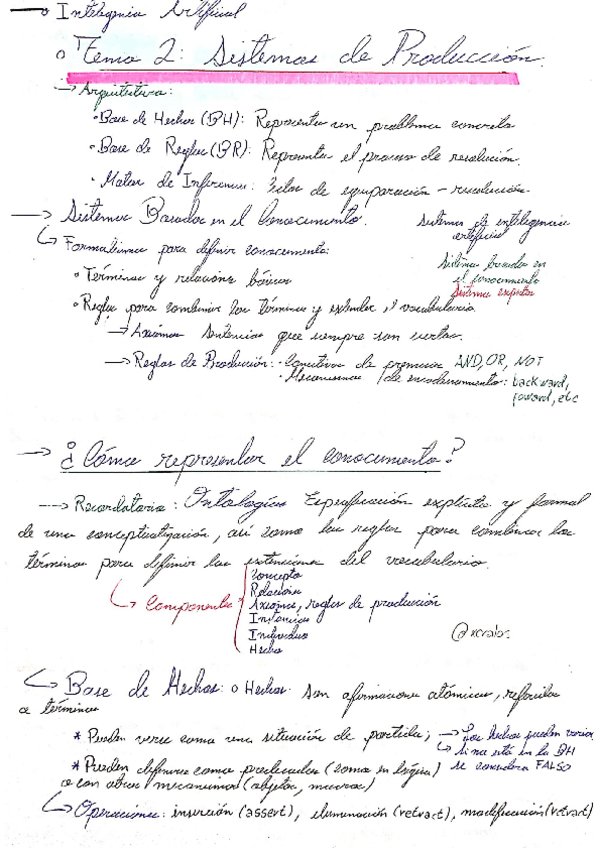 Inteligencia Artificial
Tema 2: Sistemas de Producción.
→ Arquitectura:
• Base de Hechos (BH): Representa un problema concreto
• Base de Reglas (BR): Representa el proceso de resolución.
• Motor de Inferencia: Ciclos de equiparación - resolución.
→ Sistemas Basados en el Conocimiento.
Sistemas de inteligencia artificial
Sistema basado en el conocimiento
Sistema expertos
Formalismos para definir conocimiento:
• Términos y relaciones básicos
• Reglas para combinar los términos y extender el vocabulario
→ Axiomas sentencias que siempre son ciertas.
→ Reglas de Producción: • Conectivas de premisas AND, OR, NOT
• Mecanismos de encadenamiento: backward, foward, etc
→ ¿Cómo representar el conocimiento?
--→ Recordatorio: Ontología Especificación explícita y formal
de una conceptualización, así como las reglas para combinar los
términos para definir las extensiones del vocabulario.
Componentes
Concepto
Relación
Axiomas, reglas de producción
Instancias
Individuos
Hechos
Base de Hechos: o Hechos: son afirmaciones atómicas, referidas
a términos
* Pueden verse como una situación de partida;
→ Los hechos pueden variar
Si no está en la BH
se considera FALSO
* Pueden definirse como predicados (como en lógica)
o con otros mecanismos (objetos, marcos)
Operaciones: inserción (assert), eliminación (retract), modificación (retract)